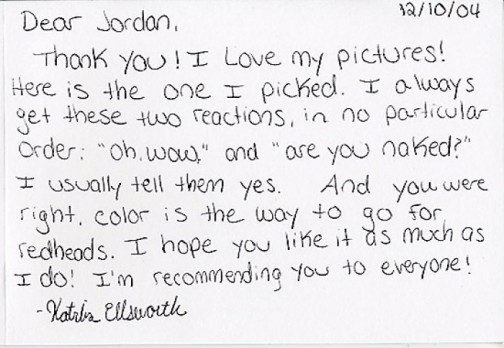 12/10/04
Dear Jordan,
Thank you! I Love my pictures!
Here is the one I picked. I always
get these two reactions, in no particular
order: "oh, wow," and "are you naked?"
I usually tell them yes. And you were
right, color is the way to go for
redheads. I hope you like it as much as
I do! I'm recommending you to everyone!
- Ellsworth